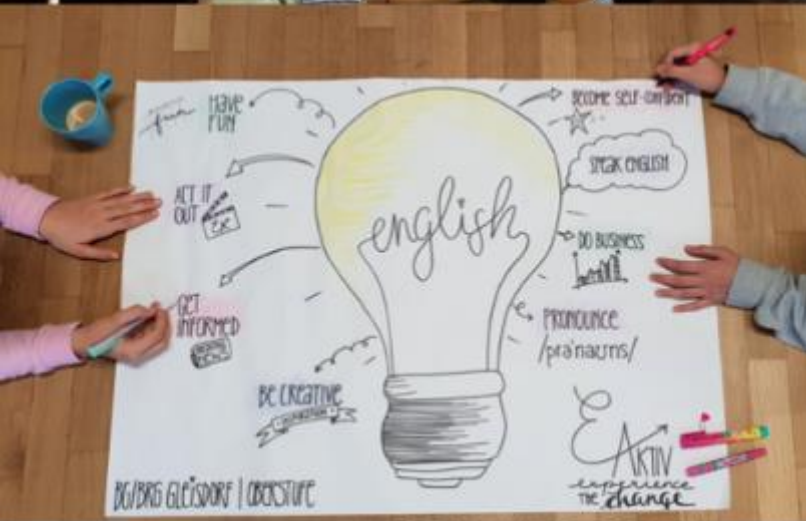 fun
HAVE
FUN
ACT IT
OUT
GET
INFORMED
BE CREATIVE
english
BECOME SELF-CONFIDENT
SPEAK ENGLISH
DO BUSINESS
PRONOUNCE
/prəˈnaʊns/
E AKTIV
experience
THE change
BG/BRG GLEISDORF | OBERSTUFE